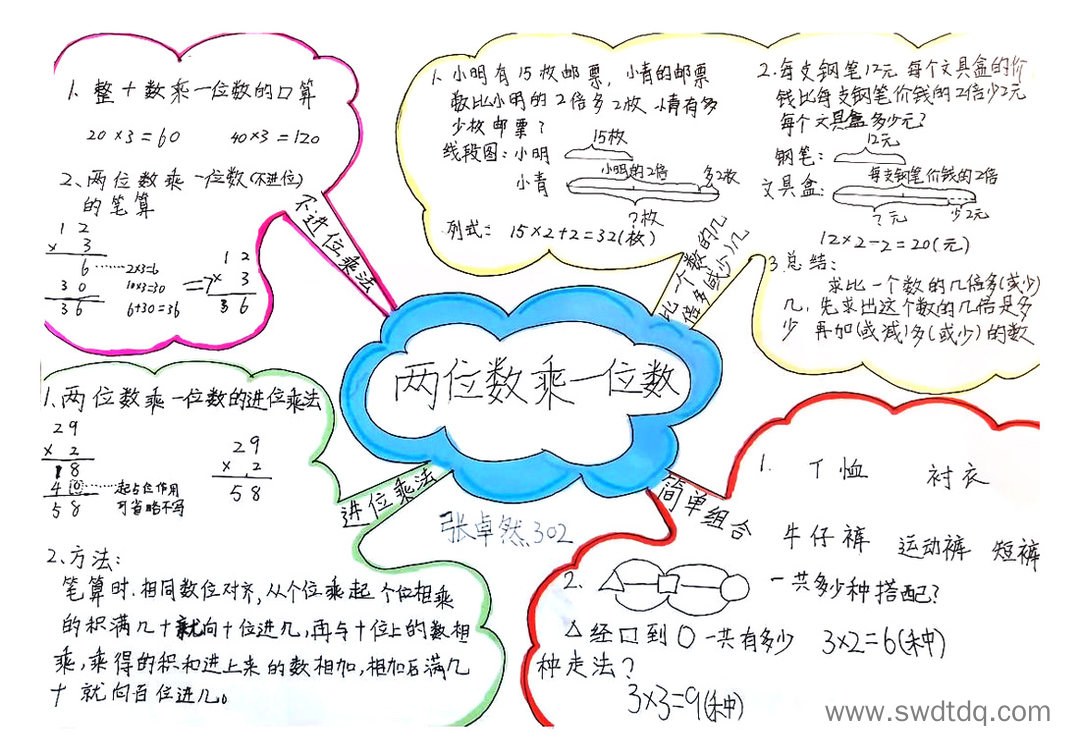 两位数乘一位数
张卓然.302
不进位乘法
1、整十数乘一位数的口算
20×3=60 40×3=120
2、两位数乘一位数(不进位)
的笔算
1 2
× 3
6 ……2×3=6
3 0 10×3=30
3 6 6+30=36
=>
1 2
× 3
3 6
比一个数的几
倍多(或少)几
1. 小明有15枚邮票, 小青的邮票
数比小明的2倍多2枚 小青有多
少枚邮票?
线段图: 小明 15枚
小青 小明的2倍 多2枚
?枚
列式: 15×2+2=32(枚)
2. 每支钢笔12元 每个文具盒的价
钱比每支钢笔价钱的2倍少2元
每个文具盒多少元?
钢笔: 12元
文具盒: 每支钢笔价钱的2倍
?元 少2元
12×2-2=20(元)
3 总结:
求比一个数的几倍多(或少)
几, 先求出这个数的几倍是多
少 再加(或减)多(或少)的数
进位乘法
1、两位数乘一位数的进位乘法
29
× 2
18
4 0 ……起占位作用
58 可省略不写
29
× 2
58
2、方法:
笔算时.相同数位对齐,从个位乘起 个位相乘
的积满几十就向十位进几,再与十位上的数相
乘,乘得的积和进上来的数相加,相加后满几
十 就向百位进几。
简单组合
1. T恤 衬衣
牛仔裤 运动裤 短裤
一共多少种搭配?
3×2=6(种)
2.
△经口到〇一共有多少
种走法?
3×3=9(种)
www.swdtdq.com